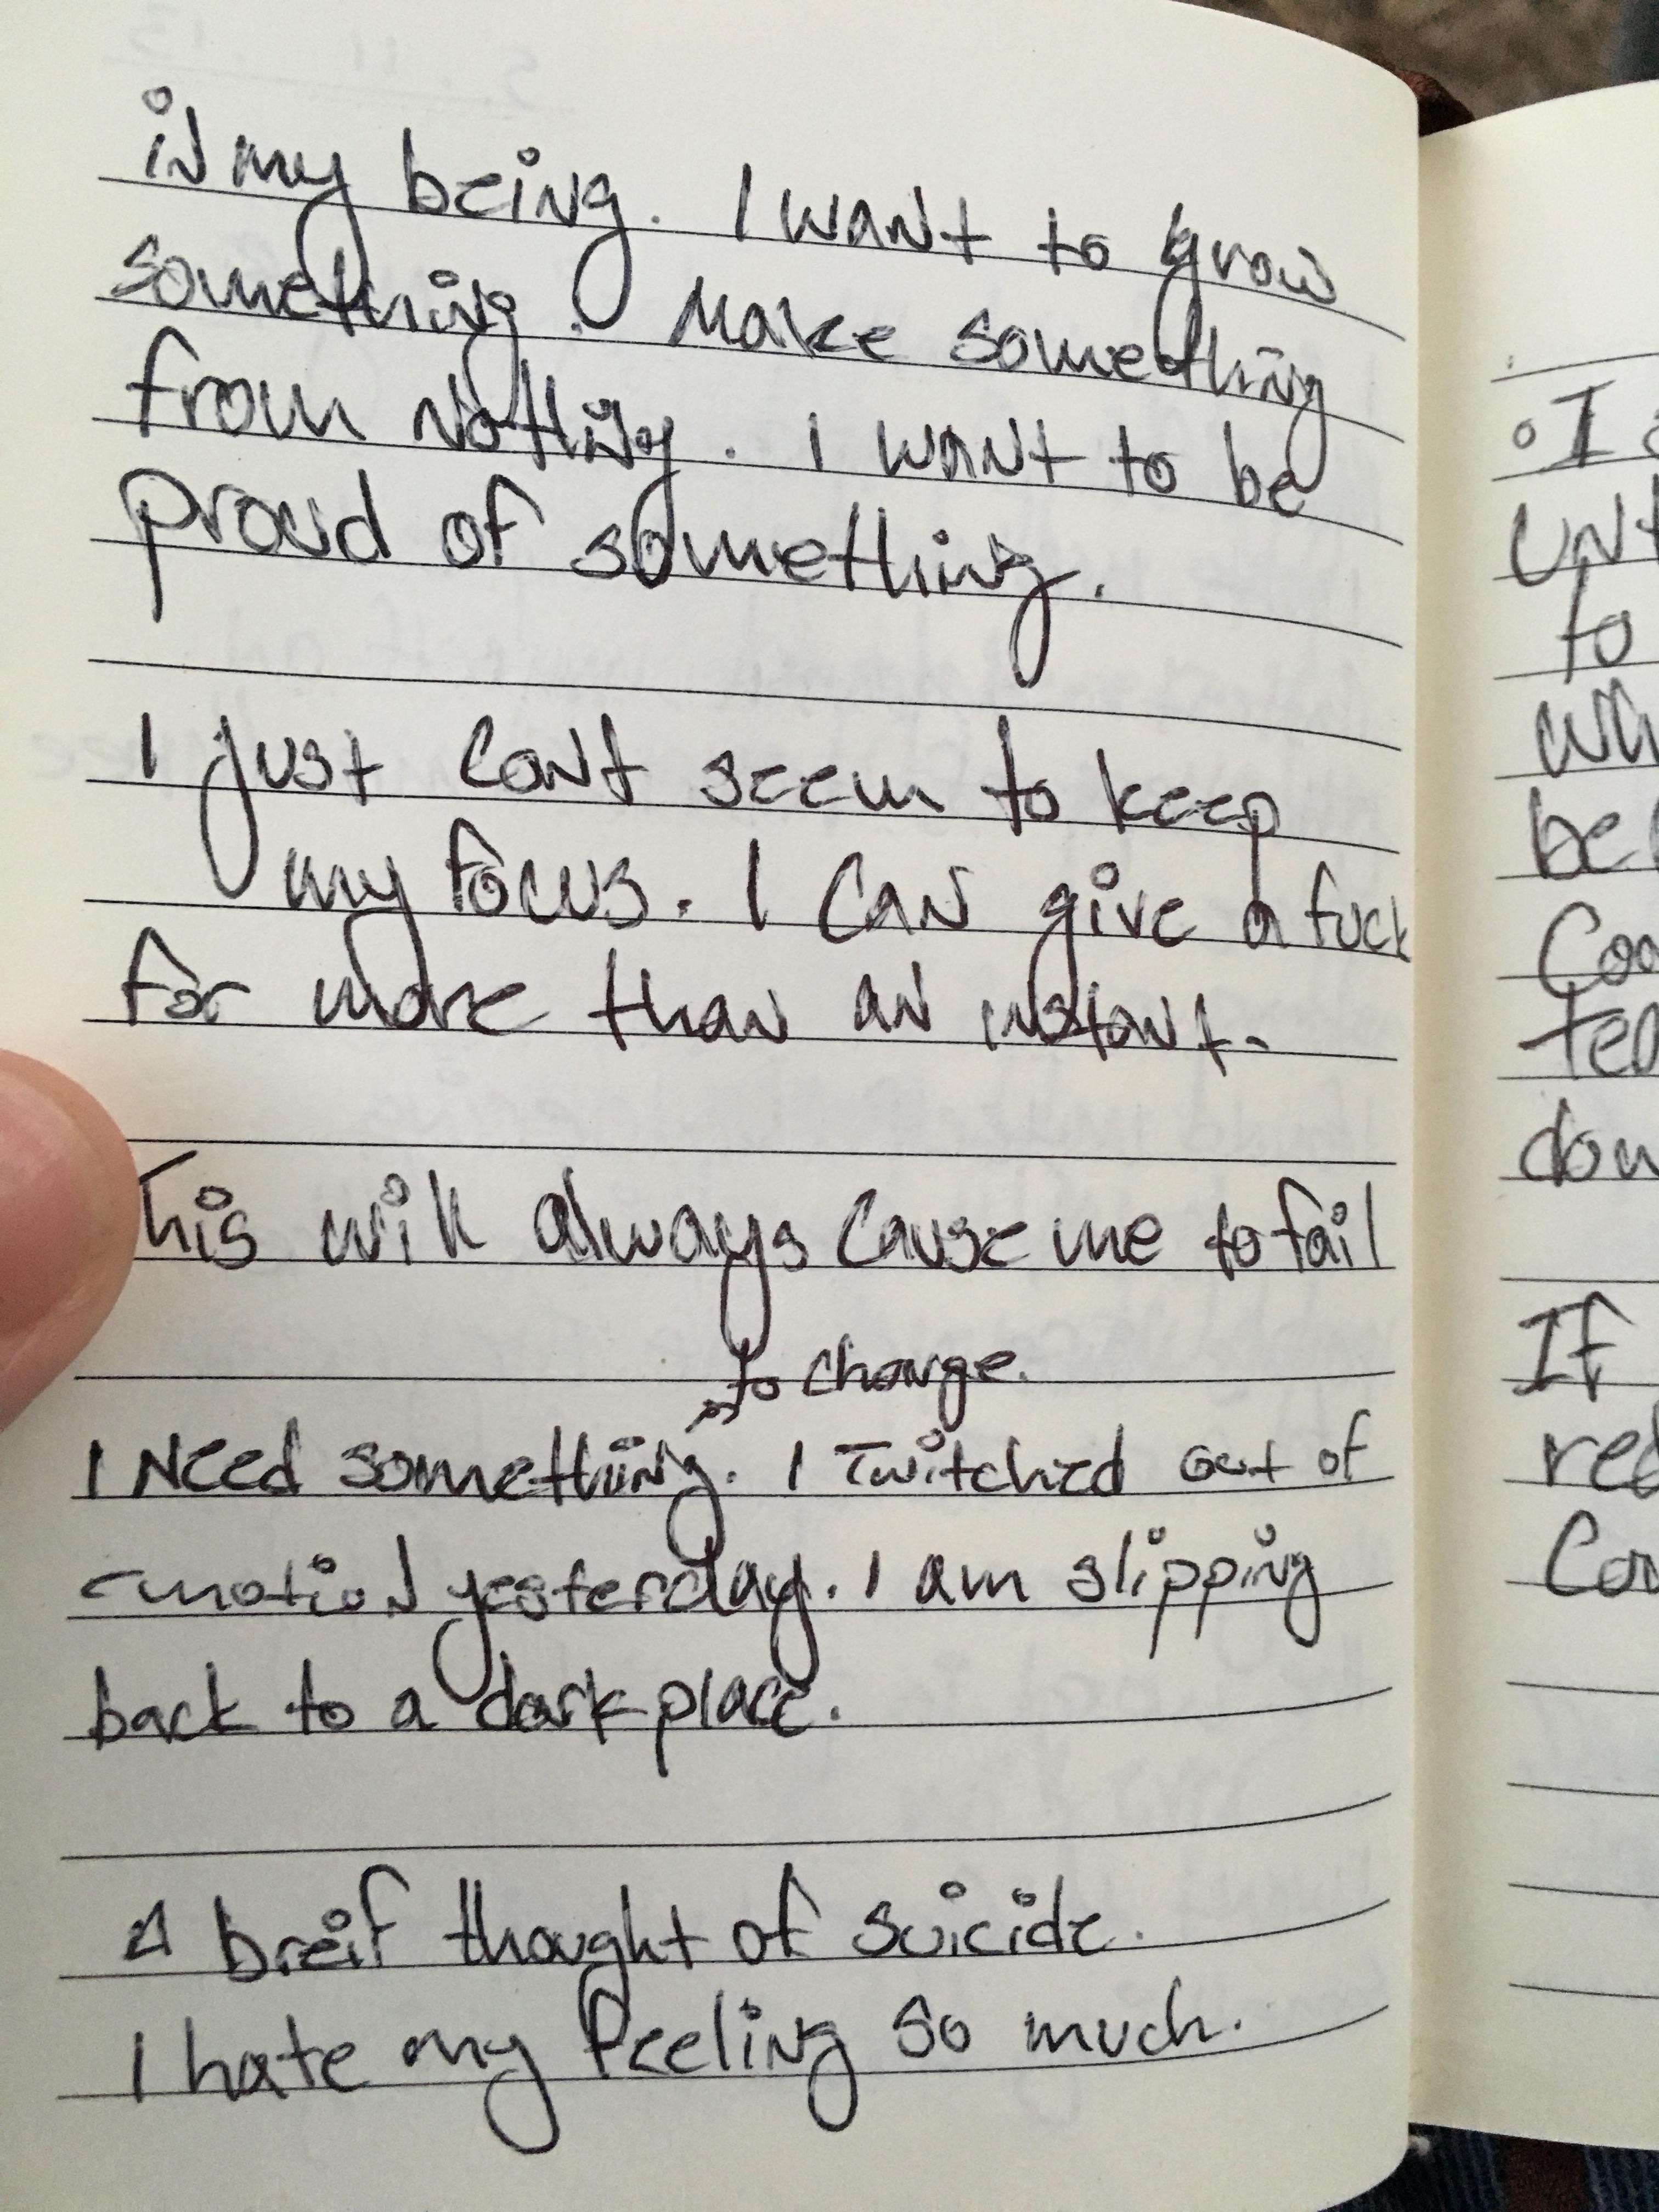 in my being. I want to grow
something. Make something
from Nothing. I want to be
proud of something.
I just can't seem to keep
my focus. I can give a fuck
for more than an instant.
This will always cause me to fail
to change.
I Need something. I Twitched out of
emotion yesterday. I am slipping
back to a dark place.
A breif thought of suicide.
I hate my feeling so much.
I
to
If